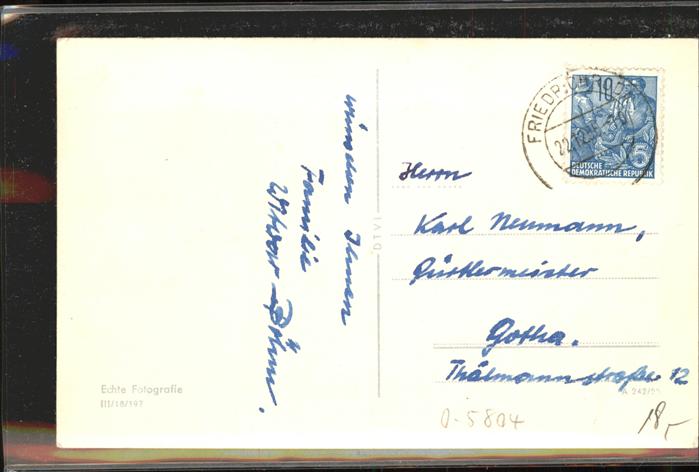 wünschen Ihnen
Familie
Böhm.
Echte Fotografie
III/18/197
DTVI
FRIEDR
22.12.
10
5
DEUTSCHE
DEMOKRATISCHE REPUBLIK
Herrn
Karl Neumann,
Gürtlermeister
Gotha.
Thälmannstraße 12
A 242/
0-5804
18,-